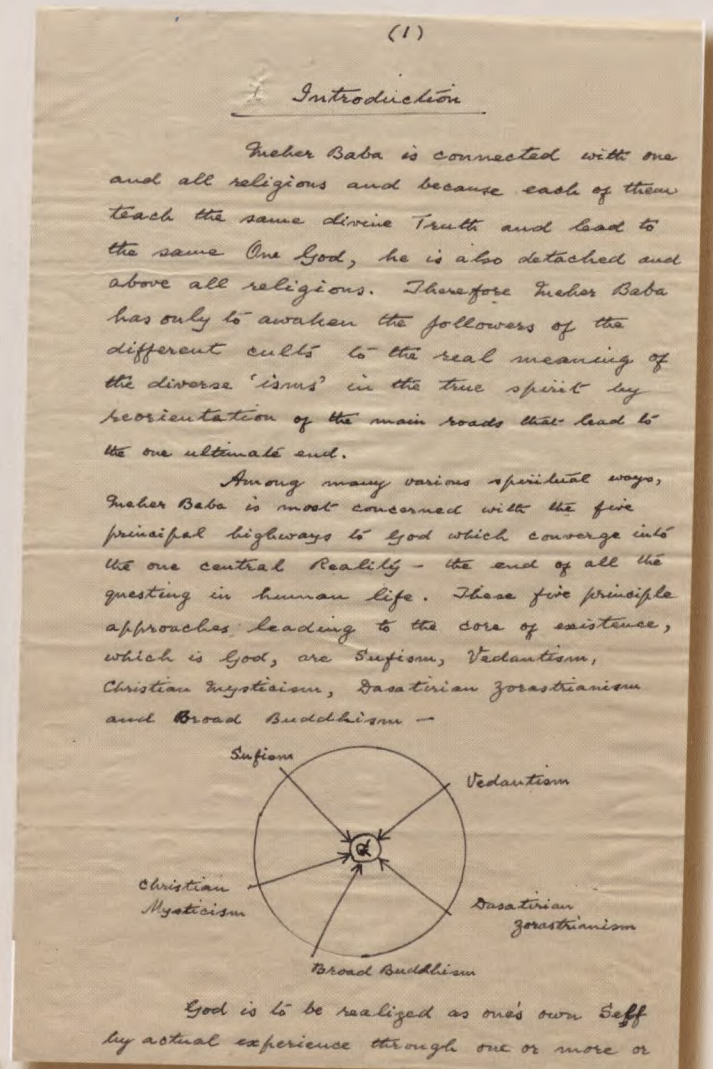 (1)
Introduction
Meher Baba is connected with one
and all religions and because each of them
teach the same divine Truth and lead to
the same One God, he is also detached and
above all religions. Therefore Meher Baba
has only to awaken the followers of the
different cults to the real meaning of
the diverse 'isms' in the true spirit by
reorientation of the main roads that lead to
the one ultimate end.
Among many various spiritual ways,
Meher Baba is most concerned with the five
principal highways to God which converge into
the one central Reality – the end of all the
questing in human life. These five principle
approaches leading to the core of existence,
which is God, are Sufism, Vedantism,
Christian Mysticism, Dasatirian Zorastrianism
and Broad Buddhism –
Sufism
Vedantism
Christian
Mysticism
Dasatirian
Zorastrianism
Broad Buddhism
God is to be realized as one's own Self
by actual experience through one or more or